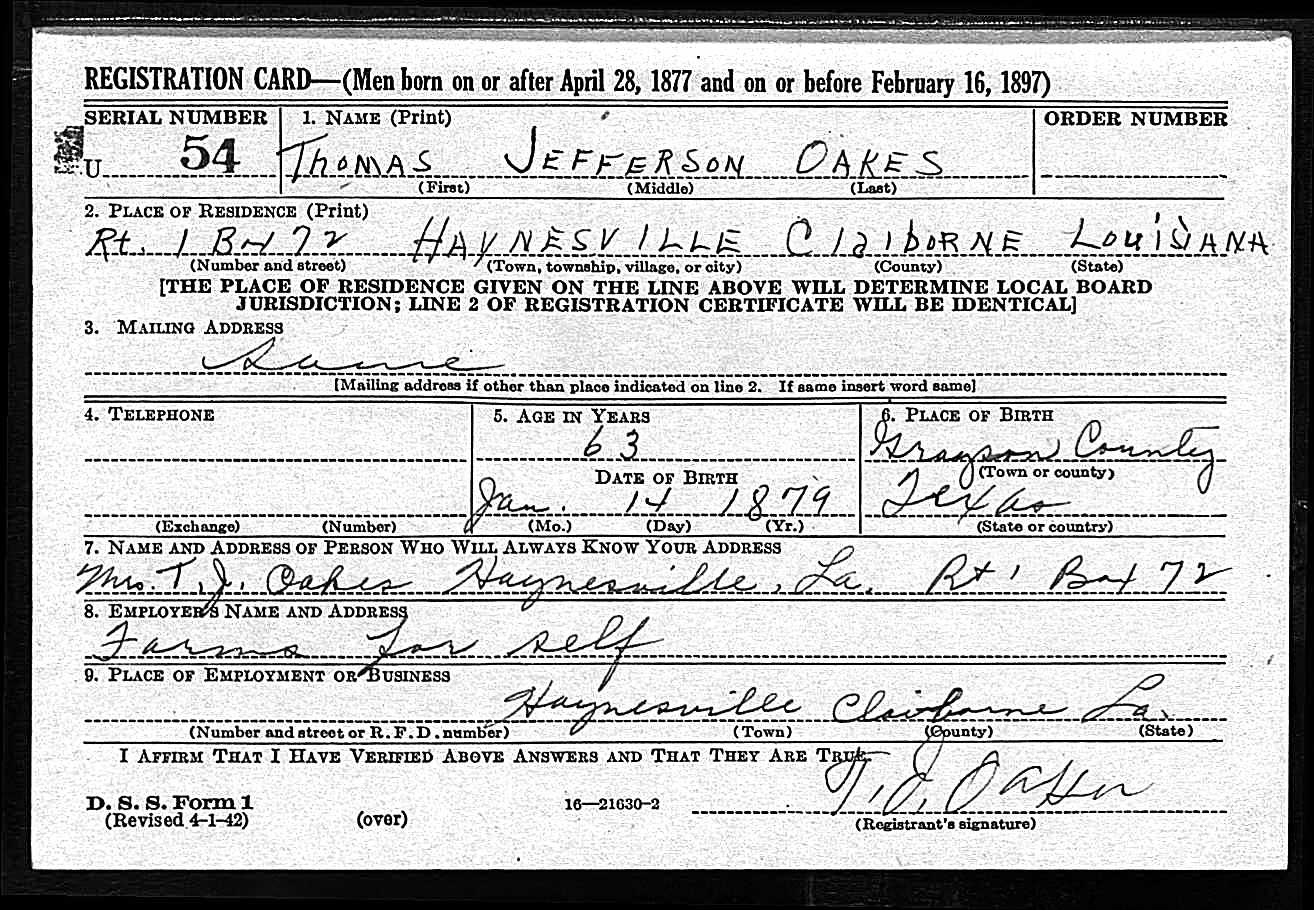 REGISTRATION CARD—(Men born on or after April 28, 1877 and on or before February 16, 1897)
SERIAL NUMBER 1. NAME (Print) ORDER NUMBER
U 54 THOMAS JEFFERSON OAKES
(First) (Middle) (Last)
2. PLACE OF RESIDENCE (Print)
Rt. 1 Box 72 HAYNESVILLE ClaibORNE LOUISIANA
(Number and street) (Town, township, village, or city) (County) (State)
[THE PLACE OF RESIDENCE GIVEN ON THE LINE ABOVE WILL DETERMINE LOCAL BOARD
JURISDICTION; LINE 2 OF REGISTRATION CERTIFICATE WILL BE IDENTICAL]
3. MAILING ADDRESS
Same
[Mailing address if other than place indicated on line 2. If same insert word same]
4. TELEPHONE 5. AGE IN YEARS 6. PLACE OF BIRTH
63 Grayson County
DATE OF BIRTH (Town or county)
Jan. 14 1879 Texas
(Exchange) (Number) (Mo.) (Day) (Yr.) (State or country)
7. NAME AND ADDRESS OF PERSON WHO WILL ALWAYS KNOW YOUR ADDRESS
Mrs. T. J. Oakes Haynesville, La. Rt 1 Box 72
8. EMPLOYER'S NAME AND ADDRESS
Farms for self
9. PLACE OF EMPLOYMENT OR BUSINESS
Haynesville Claiborne La.
(Number and street or R. F. D. number) (Town) (County) (State)
I AFFIRM THAT I HAVE VERIFIED ABOVE ANSWERS AND THAT THEY ARE TRUE.
T. J. Oakes
D. S. S. Form 1
(Revised 4-1-42) (over) 16—21630-2
(Registrant's signature)